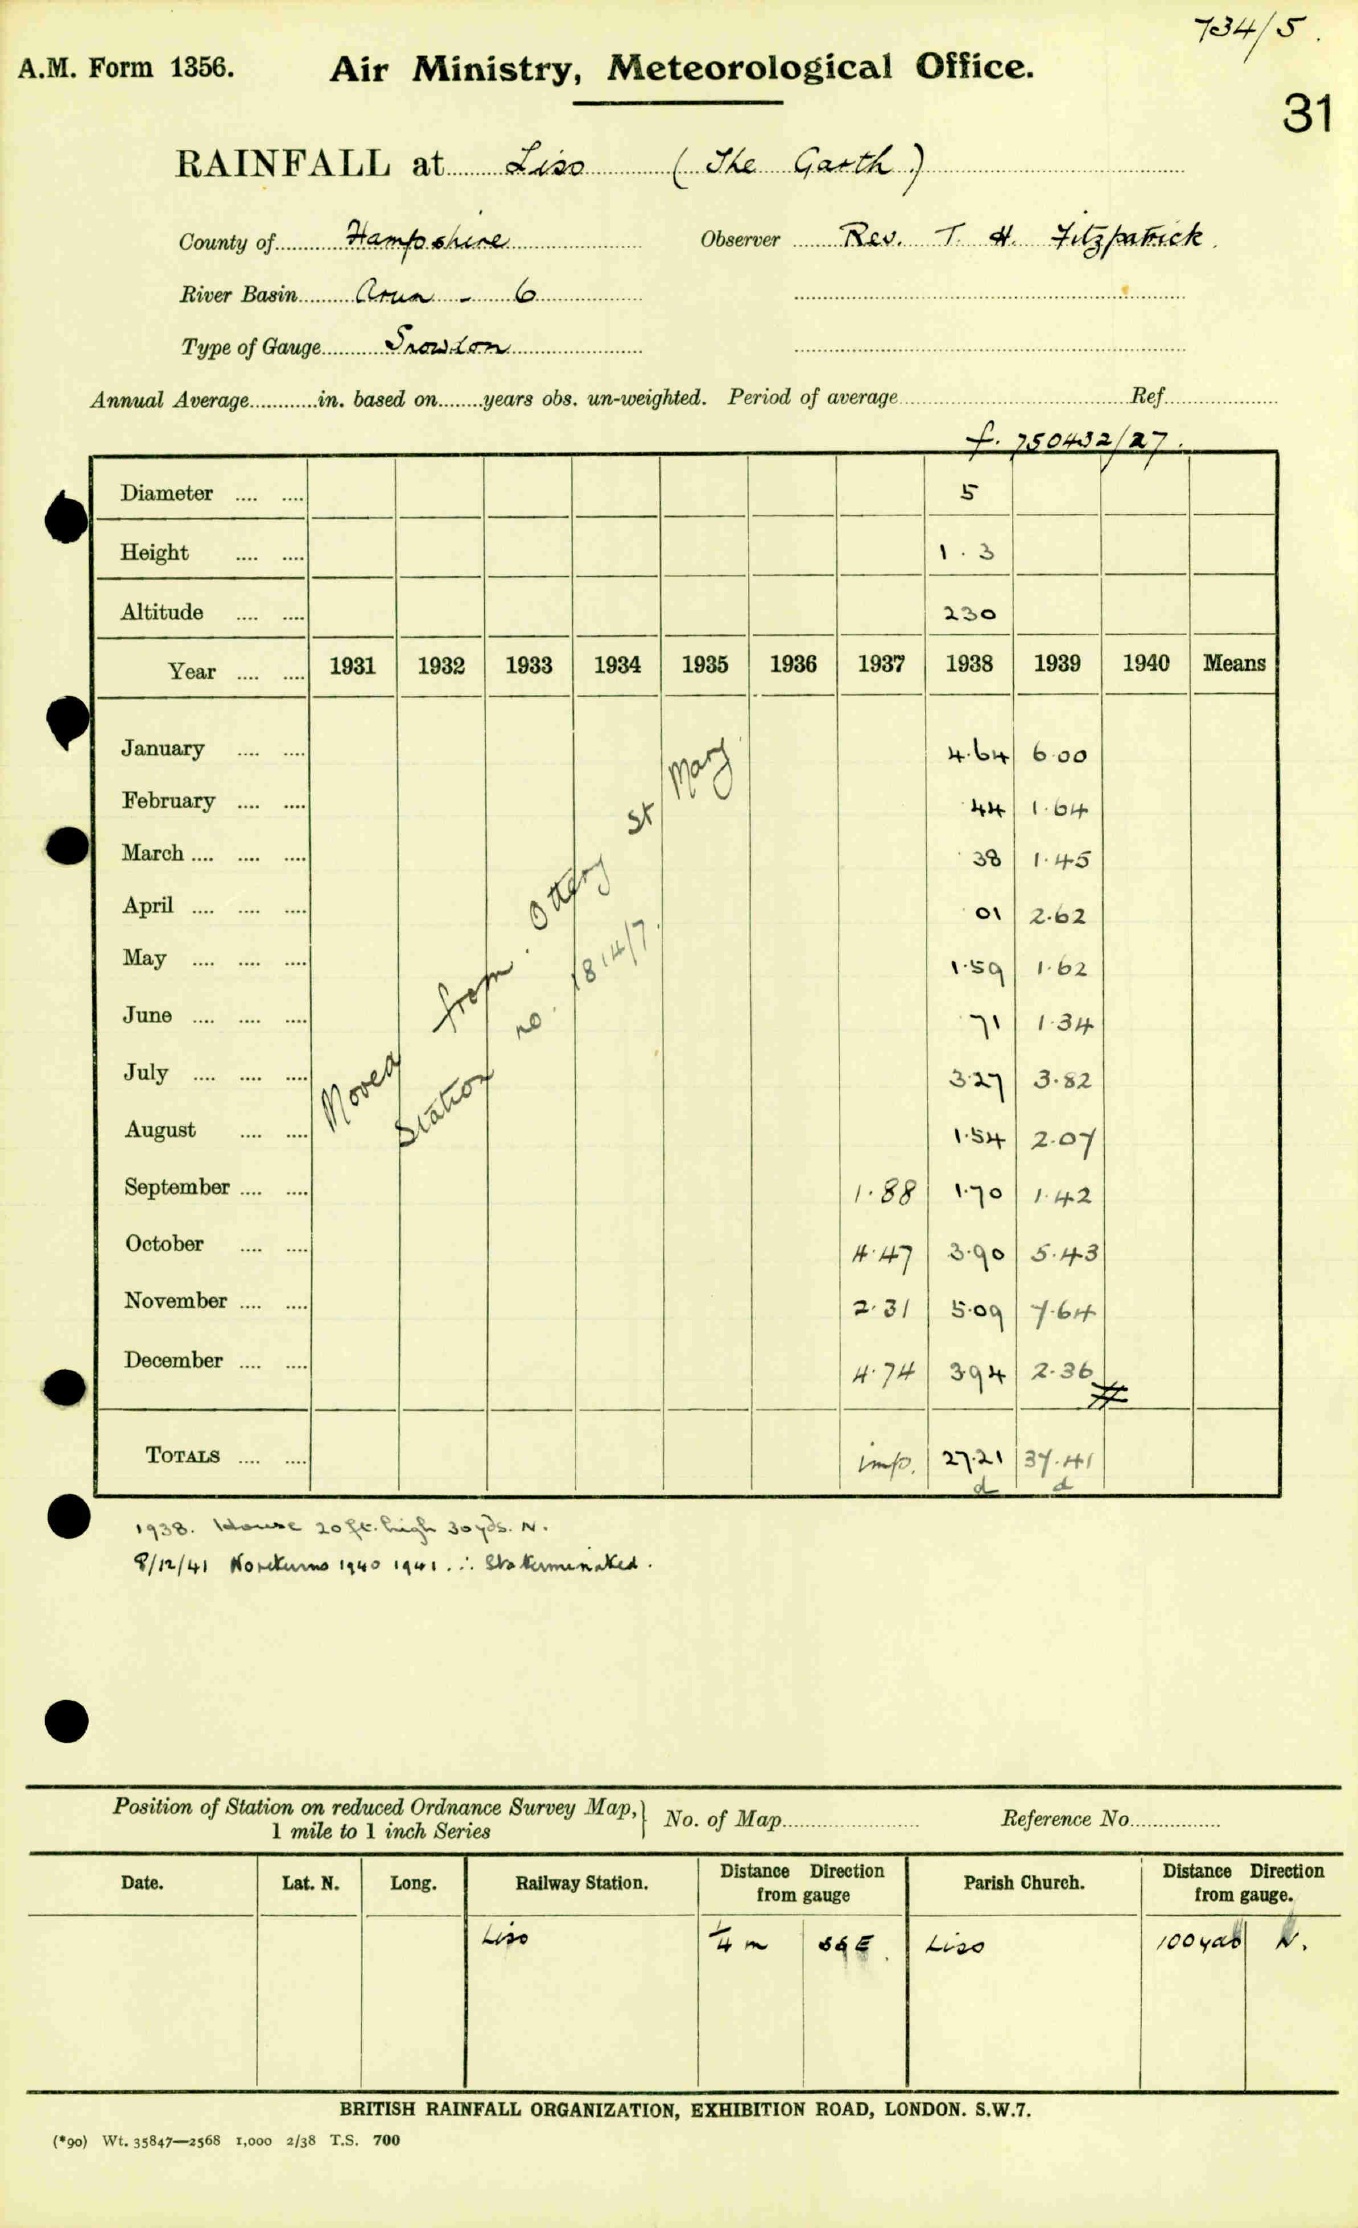 734/5.
A.M. Form 1356. Air Ministry, Meteorological Office.
31
RAINFALL at Liss (The Garth)
County of Hampshire Observer Rev. T. H. Fitzpatrick.
River Basin Arun - 6
Type of Gauge Snowdon
Annual Average............in. based on........years obs. un-weighted. Period of average Ref.
f. 750432/27.
Diameter .... .... 5
Height .... .... 1.3
Altitude .... .... 230
Year .... .... 1931 1932 1933 1934 1935 1936 1937 1938 1939 1940 Means
January .... .... 4.64 6.00
February .... .... .44 1.64
March .... .... .... .38 1.45
April .... .... .... .01 2.62
May .... .... .... 1.59 1.62
June .... .... .... .71 1.34
July .... .... .... 3.27 3.82
August .... .... 1.54 2.07
September .... .... 1.88 1.70 1.42
October .... .... 4.47 3.90 5.43
November .... .... 2.31 5.09 7.64
December .... .... 4.74 3.94 2.36
TOTALS .... .... imp. 27.21 37.41
d d
Moved from Ottery St Mary
Station no. 1814/7.
1938. House 20ft. high 30yds. N.
8/12/41 No returns 1940 1941 .∴ Sta terminated.
Position of Station on reduced Ordnance Survey Map, } No. of Map Reference No.
1 mile to 1 inch Series
Date. Lat. N. Long. Railway Station. Distance Direction from gauge Parish Church. Distance Direction from gauge.
Liss 1/4 m SSE. Liss 100 yds N.
BRITISH RAINFALL ORGANIZATION, EXHIBITION ROAD, LONDON. S.W.7.
(*90) Wt. 35847—2568 1,000 2/38 T.S. 700